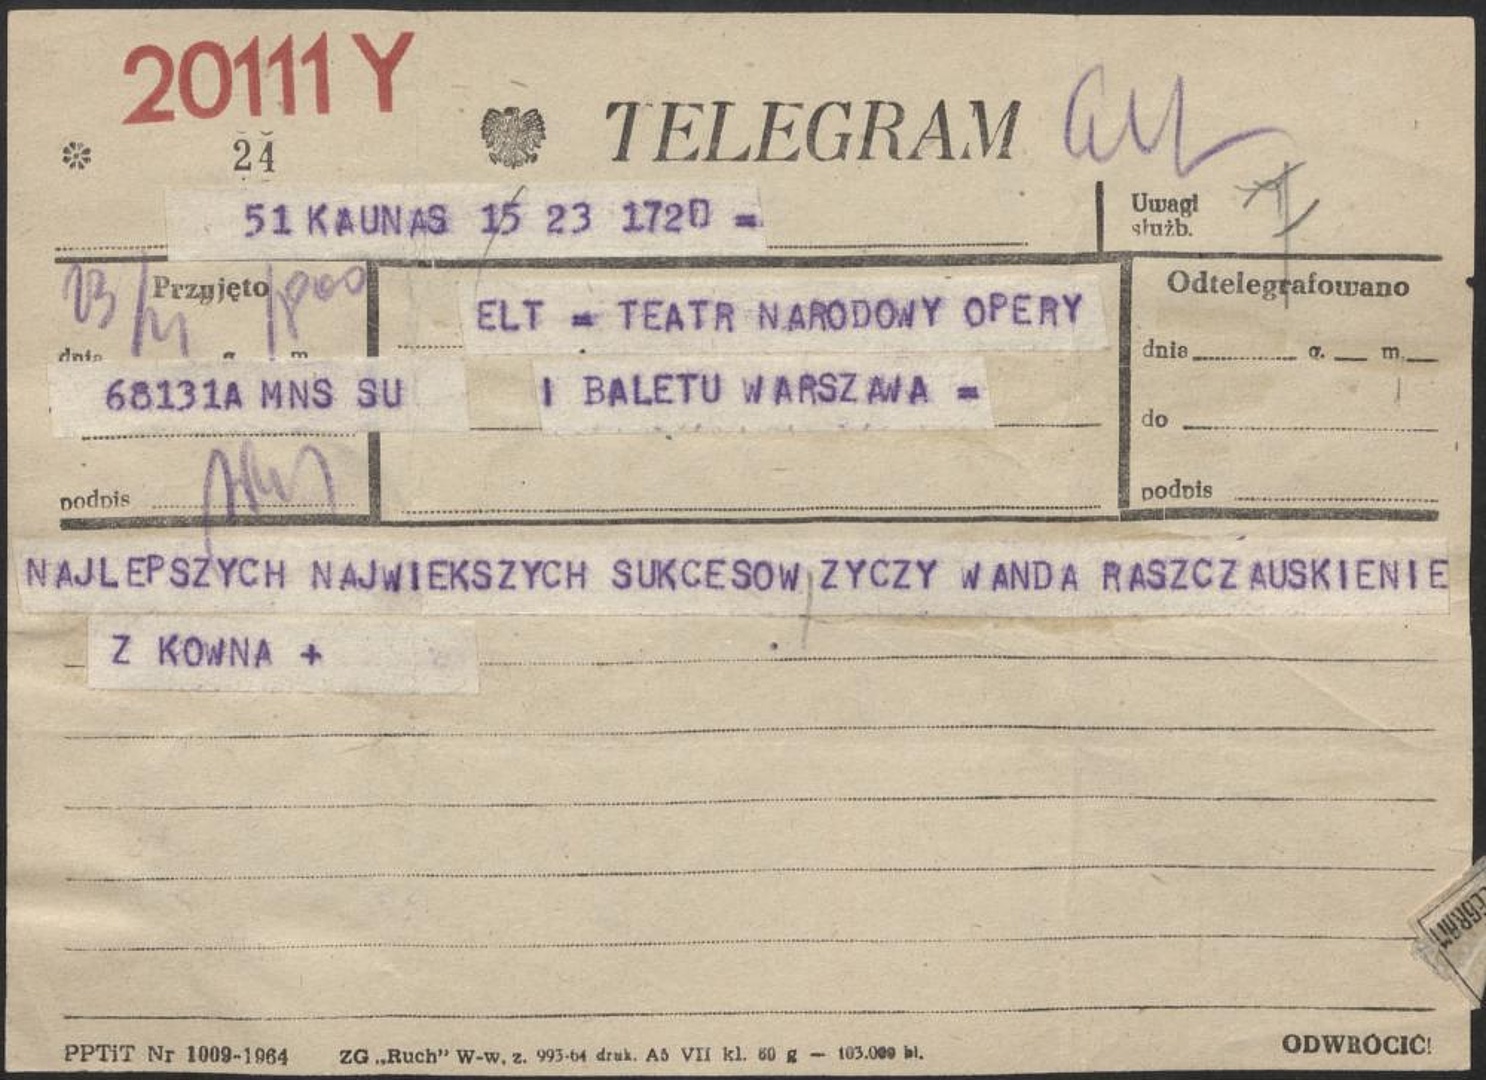 20111 Y
24
TELEGRAM
51 KAUNAS 15 23 1720 =
Uwagi
służb.
Przyjęto
ELT = TEATR NARODOWY OPERY
Odtelegrafowano
dnia g. m.
dnia g. m.
68131A MNS SU
I BALETU WARSZAWA =
do
podpis
podpis
NAJLEPSZYCH NAJWIEKSZYCH SUKCESOW ZYCZY WANDA RASZCZAUSKIENIE
Z KOWNA +
PPTiT Nr 1009-1964 ZG „Ruch” W-w, z. 993-64 druk. A5 VII kl. 60 g — 103.000 bl.
ODWRÓCIĆ!